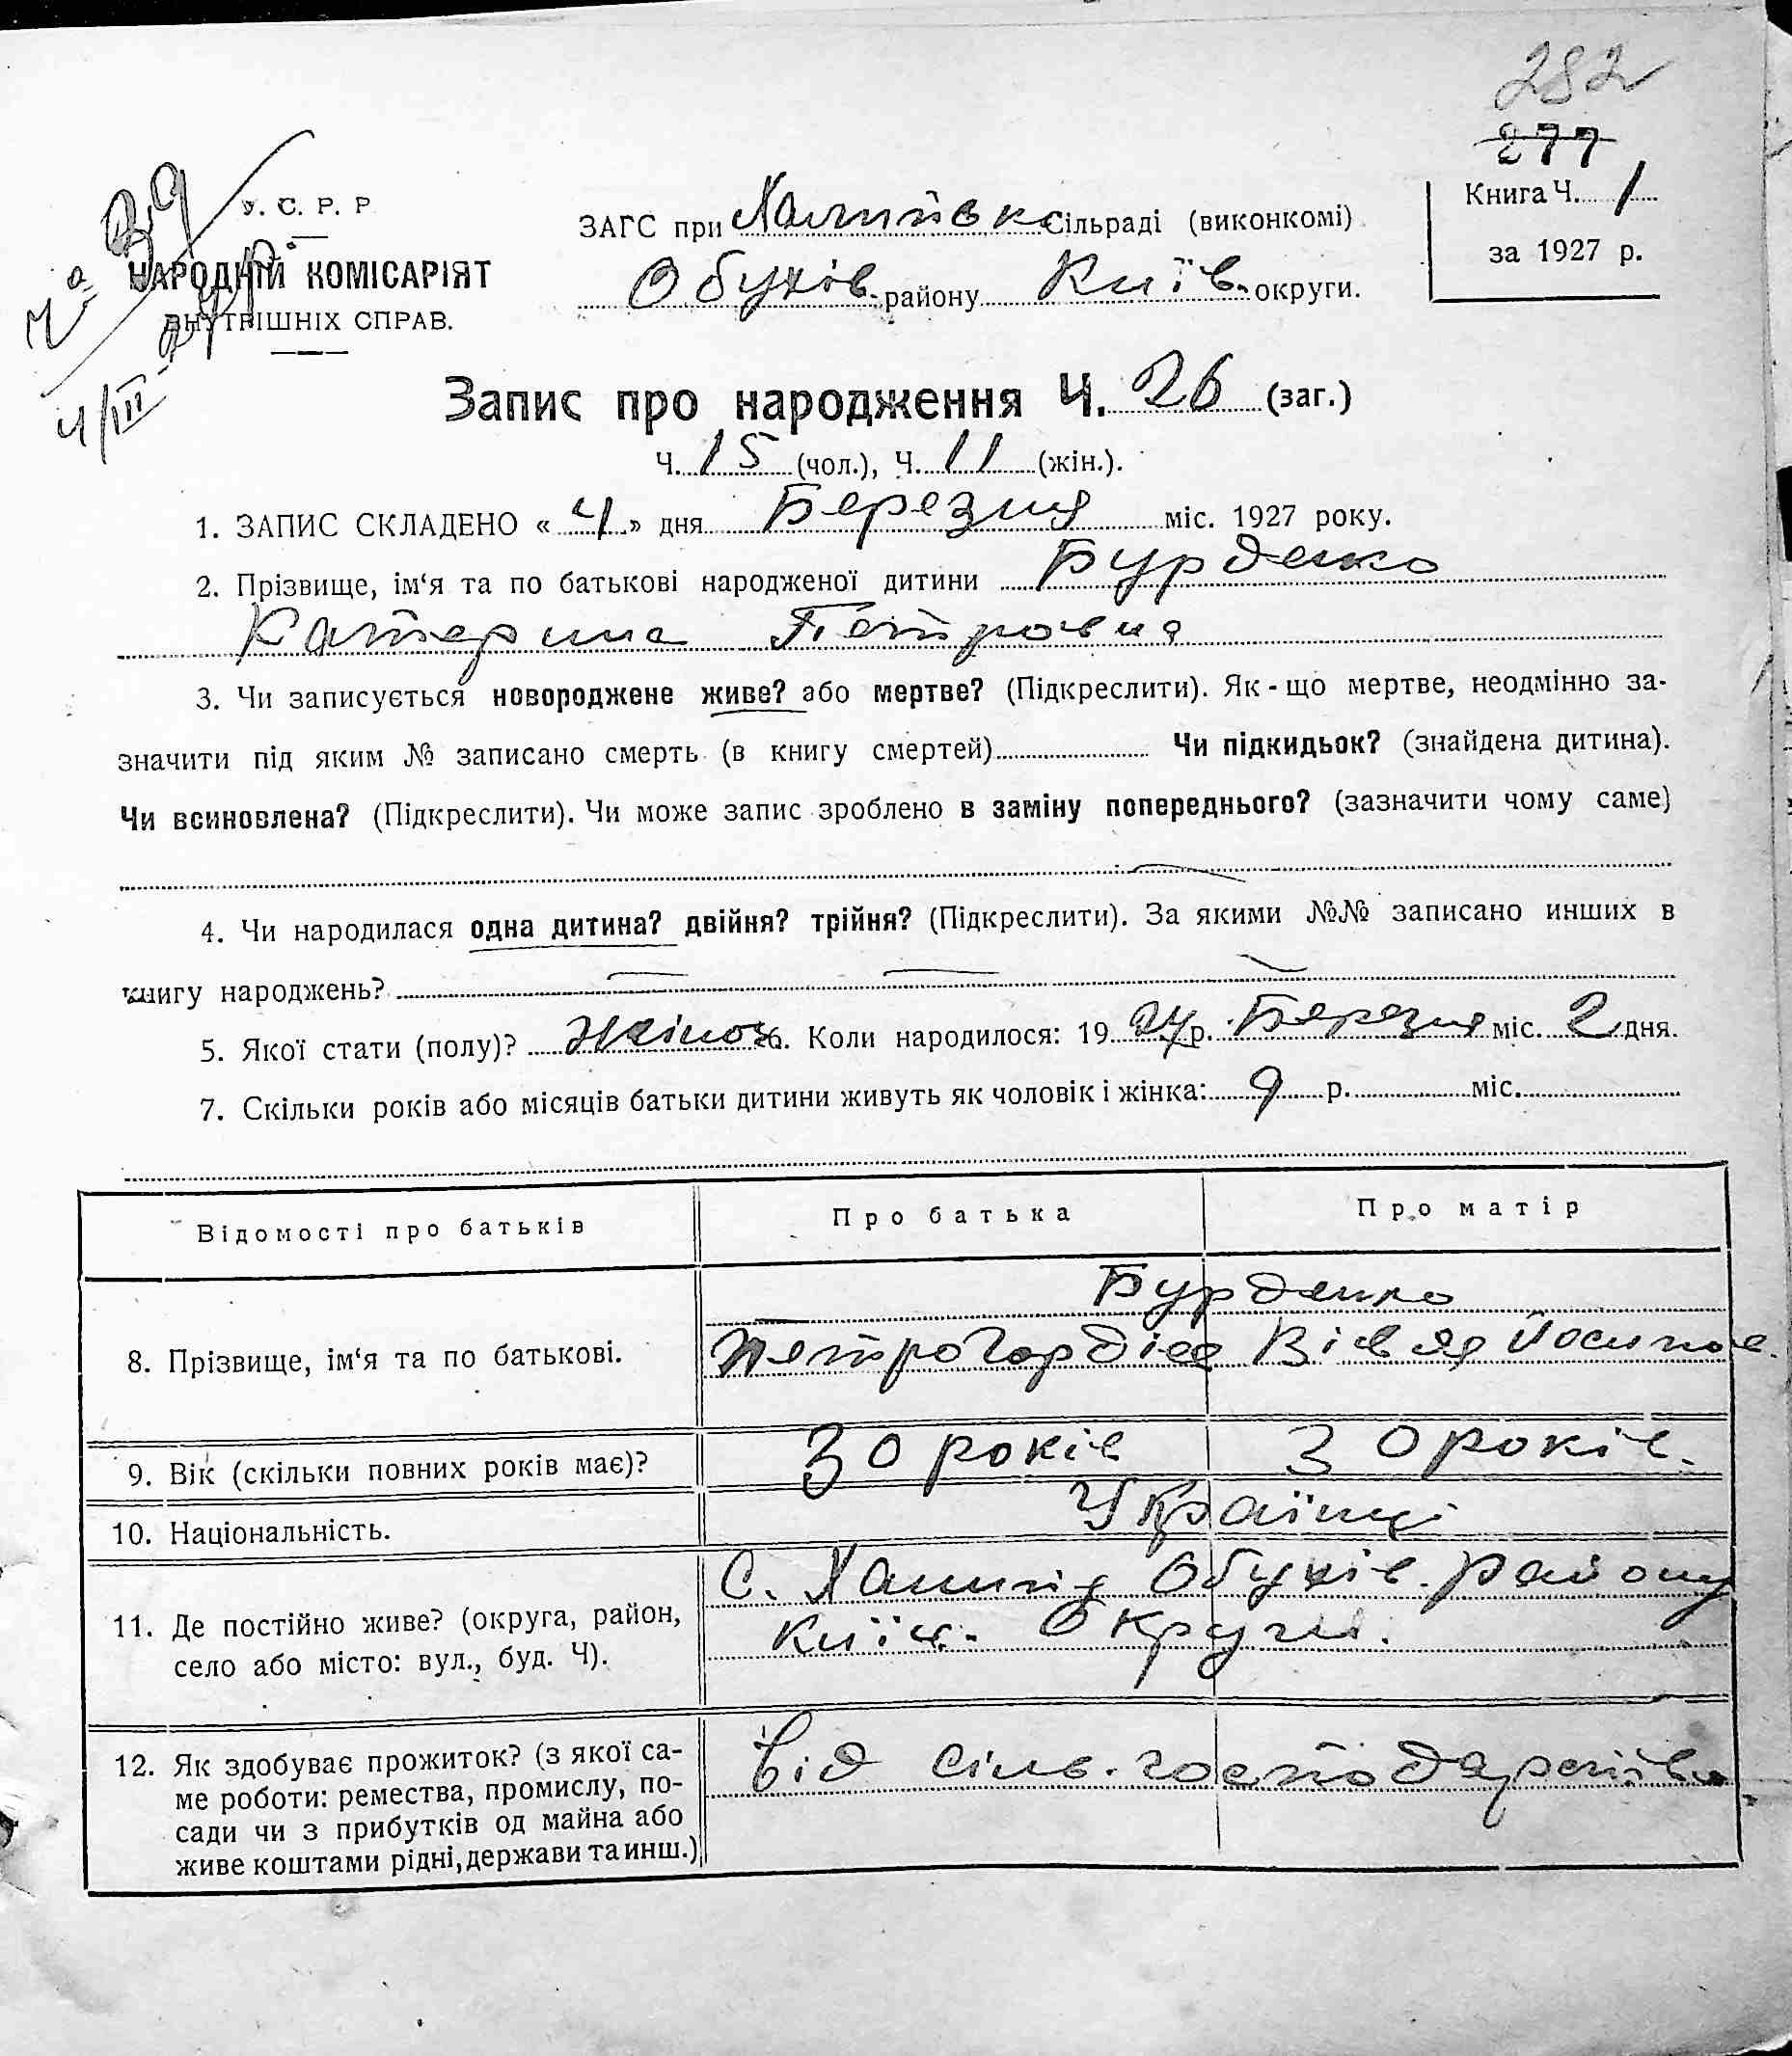 282
277
У. С. Р. Р
НАРОДНІЙ КОМІСАРІЯТ
ВНУТРІШНІХ СПРАВ.
4/III
ЗАГС при Халипівськ Сільраді (виконкомі)
Обухів. району Київ. округи.
Книга Ч. 1
за 1927 р.
Запис про народження Ч. 26 (заг.)
Ч. 15 (чол.), Ч. 11 (жін.).
1. ЗАПИС СКЛАДЕНО « 4 » дня Березня міс. 1927 року.
2. Прізвище, ім‘я та по батькові народженої дитини Бурденко
Катерина Петровна
3. Чи записується новороджене живе? або мертве? (Підкреслити). Як - що мертве, неодмінно за-
значити під яким № записано смерть (в книгу смертей) Чи підкидьок? (знайдена дитина).
Чи всиновлена? (Підкреслити). Чи може запис зроблено в заміну попереднього? (зазначити чому саме)
4. Чи народилася одна дитина? двійня? трійня? (Підкреслити). За якими №№ записано инших в
книгу народжень?
5. Якої стати (полу)? Жіноч 6. Коли народилося: 19 27 р. Березня міс. 2 дня.
7. Скільки років або місяців батьки дитини живуть як чоловік і жінка: 9 р. міс.
Відомості про батьків Про батька Про матір
Бурденко
8. Прізвище, ім‘я та по батькові. Петро Гордіев Вівдя Йосипов.
9. Вік (скільки повних років має)? 30 років 30 років.
10. Національність. Українці
С. Халипъя Обухів. району
11. Де постійно живе? (округа, район,
Київ. Округи.
село або місто: вул., буд. Ч).
12. Як здобуває прожиток? (з якої са-
Від сільв. господарства
ме роботи: ремества, промислу, по-
сади чи з прибутків од майна або
живе коштами рідні, держави та инш.)